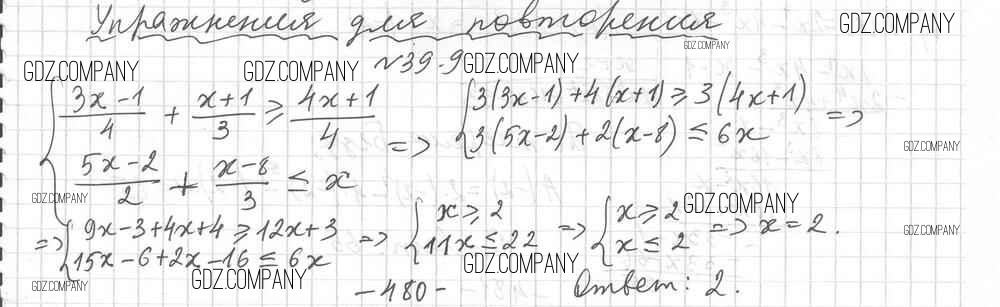 Упражнения для повторения
GDZ.COMPANY
GDZ.COMPANY
№39.9
GDZ.COMPANY GDZ.COMPANY GDZ.COMPANY
{ (3x-1)/4 + (x+1)/3 ≥ (4x+1)/4
(5x-2)/2 + (x-8)/3 ≤ x
=> { 3(3x-1)+4(x+1) ≥ 3(4x+1)
3(5x-2)+2(x-8) ≤ 6x =>
GDZ.COMPANY
GDZ.COMPANY
GDZ.COMPANY
=> { 9x-3+4x+4 ≥ 12x+3
15x-6+2x-16 ≤ 6x
=> { x ≥ 2
11x ≤ 22
=> { x ≥ 2
x ≤ 2 => x=2.
GDZ.COMPANY
GDZ.COMPANY GDZ.COMPANY GDZ.COMPANY
GDZ.COMPANY
-480-
Ответ: 2.